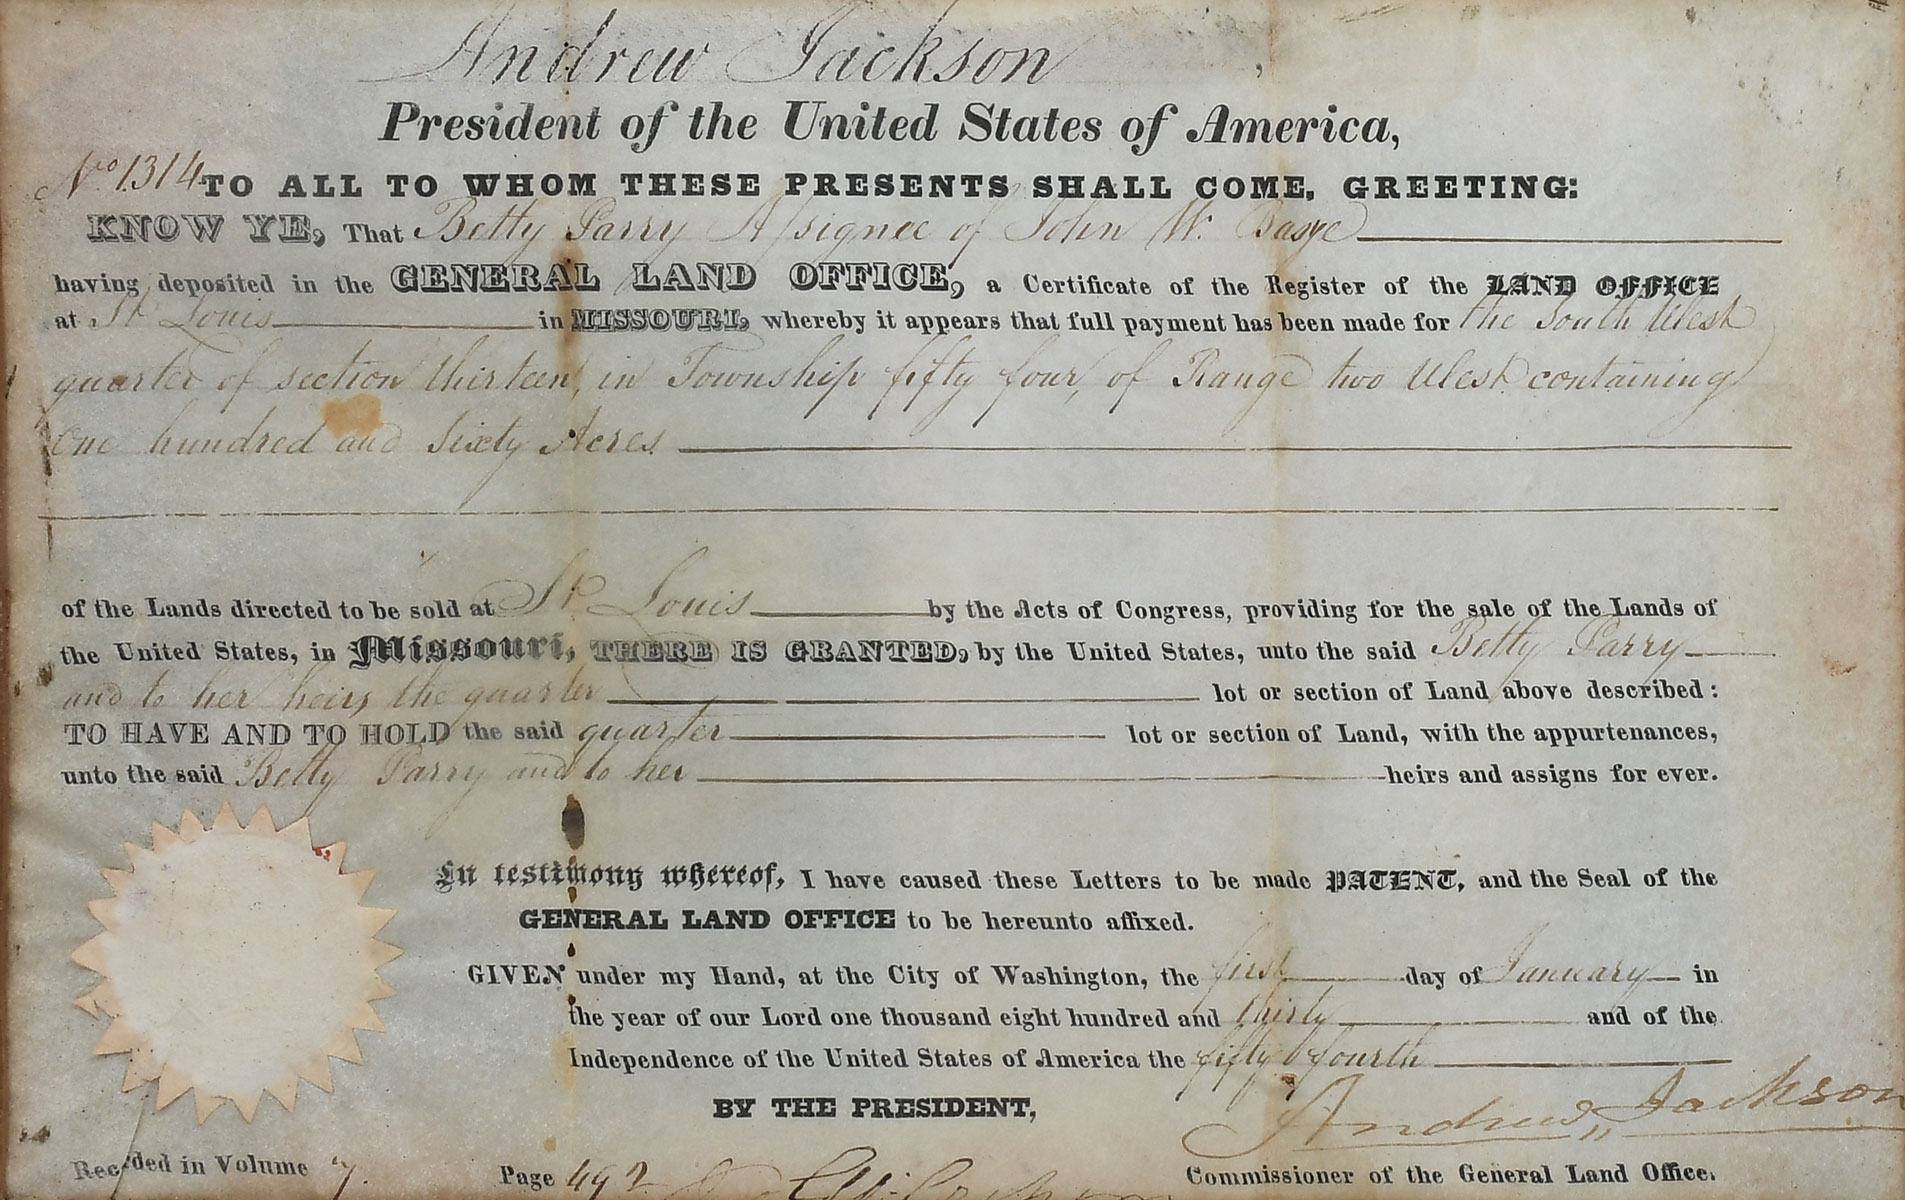 Andrew Jackson
President of the United States of America,
No. 1314 TO ALL TO WHOM THESE PRESENTS SHALL COME, GREETING:
KNOW YE, That Betty Parry Assignee of John W. Basye
having deposited in the GENERAL LAND OFFICE, a Certificate of the Register of the LAND OFFICE
at St Louis in MISSOURI, whereby it appears that full payment has been made for the South West
quarter of section thirteen, in Township fifty four, of Range two West containing
One hundred and Sixty Acres
of the Lands directed to be sold at St Louis by the Acts of Congress, providing for the sale of the Lands of
the United States, in Missouri, THERE IS GRANTED, by the United States, unto the said Betty Parry
and to her heirs the quarter lot or section of Land above described:
TO HAVE AND TO HOLD the said quarter lot or section of Land, with the appurtenances,
unto the said Betty Parry and to her heirs and assigns for ever.
In testimony whereof, I have caused these Letters to be made PATENT, and the Seal of the
GENERAL LAND OFFICE to be hereunto affixed.
GIVEN under my Hand, at the City of Washington, the first day of January in
the year of our Lord one thousand eight hundred and thirty and of the
Independence of the United States of America the fifty fourth
BY THE PRESIDENT, Andrew Jackson
Recorded in Volume 7. Page 492 Commissioner of the General Land Office.